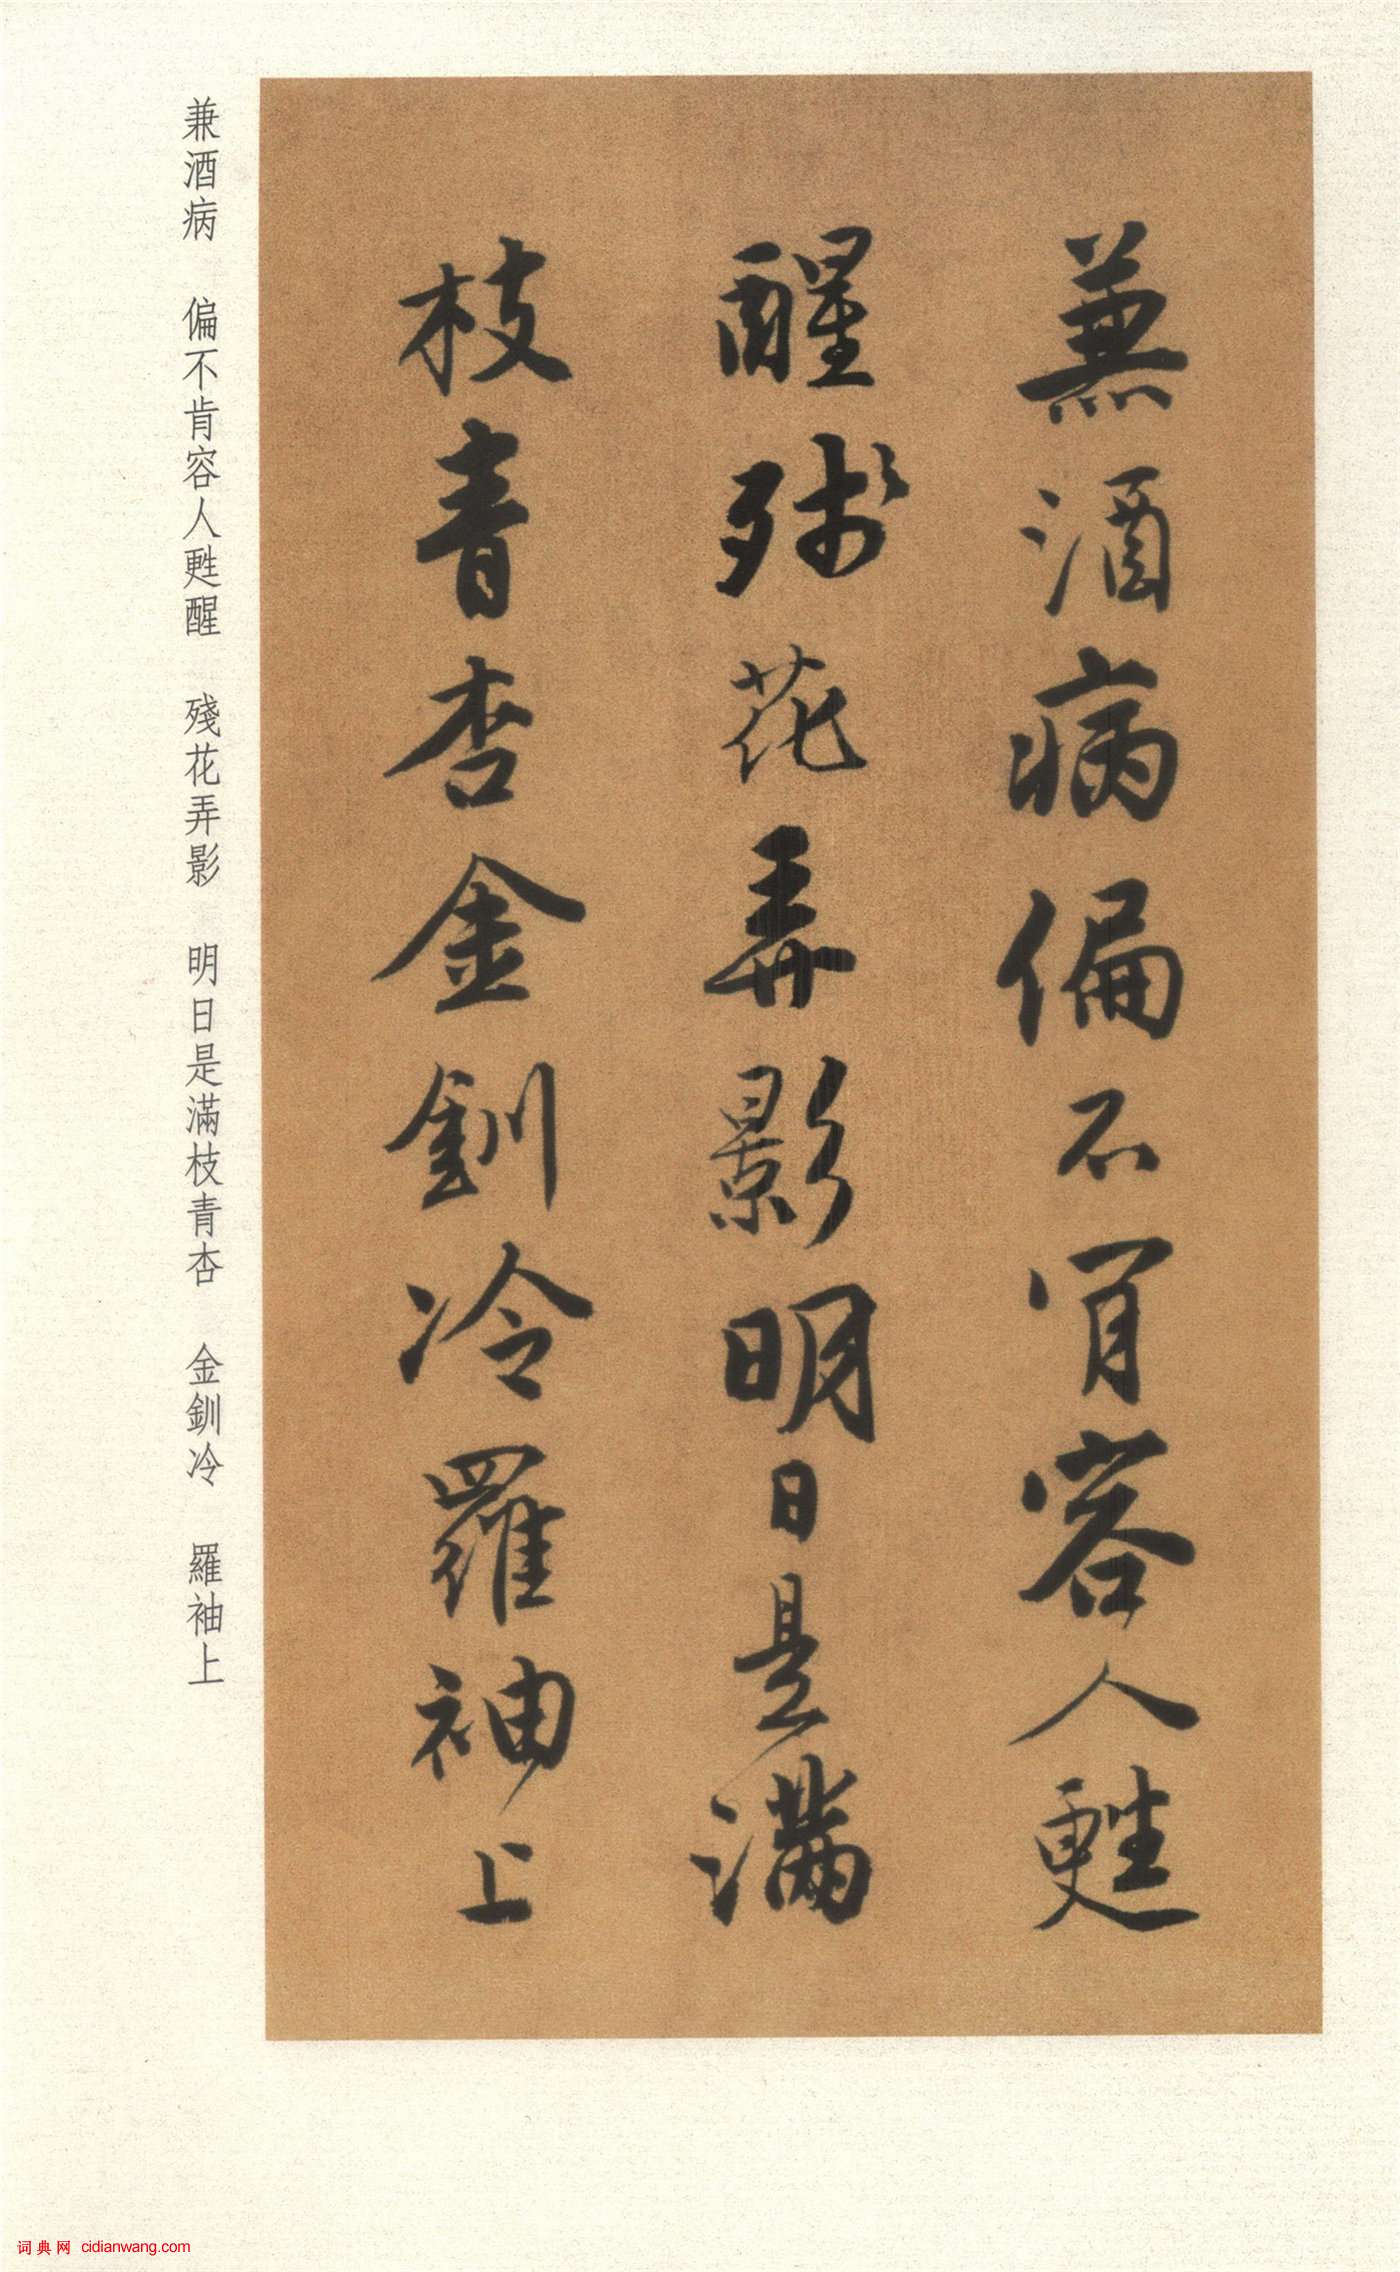 兼酒病偏不肯容人甦
醒殘花弄影明日是滿
枝青杏金釧冷羅袖上
兼酒病　偏不肯容人甦醒　殘花弄影　明日是滿枝青杏　金釧冷　羅袖上
词典网 cidianwang.com